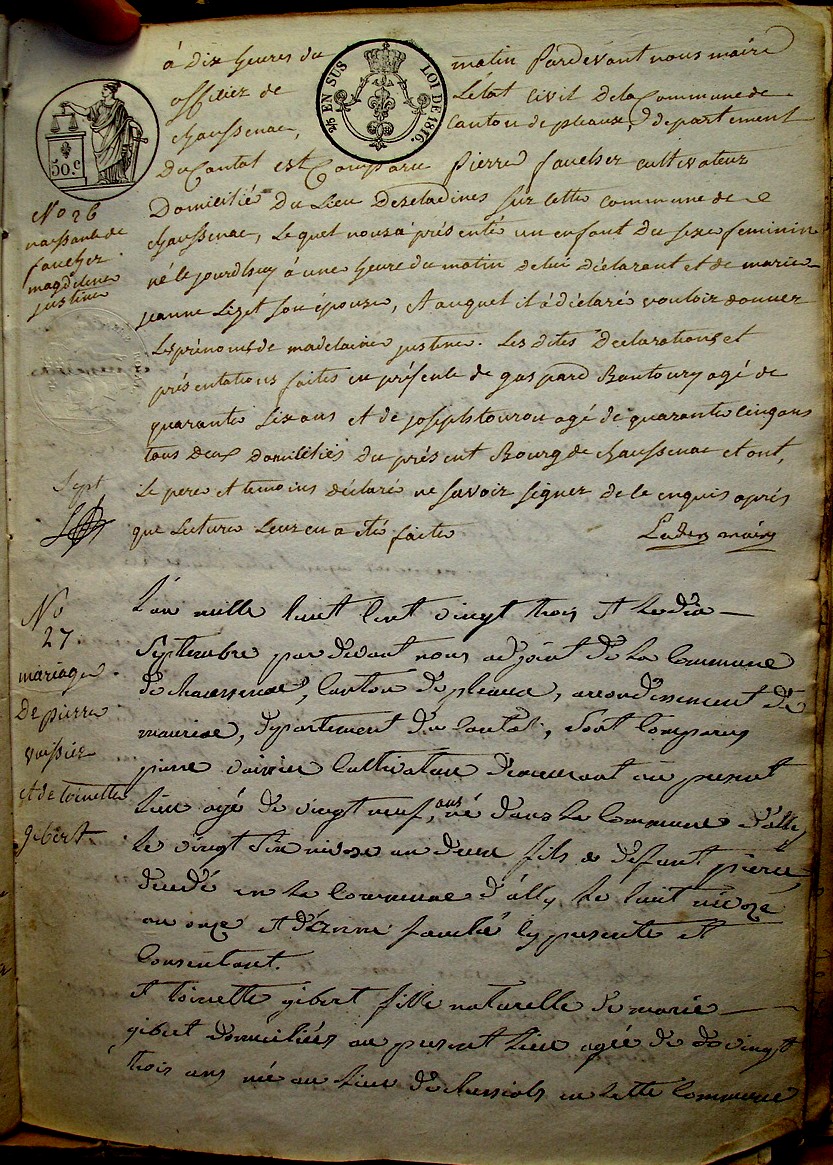 à dix heures du matin Pardevant nous maire
officier de L'état Civil de la Commune de
chaussenac, Canton de pleaux, département
Du Cantal est Comparu Pierre faucher cultivateur
Domicilié Du Lieu Descladines sur cette commune de
chaussenac, Lequel nous à présenté un enfant du sexe feminin
né le jourdhuy à une heure du matin de lui déclarant et de marie
jeanne Lizet son épouse, et auquel il à déclaré vouloir donner
Les prénoms de madelaine justine. Les dites Déclarations et
présentations faites en présence de gaspard Bantoury agé de
quarante Six ans et de joseph tourou agé de quarante cinq ans
tous deux domiciliés du présent Bourg de chaussenac et ont,
Le pere et temoins déclaré ne savoir signer de ce enquis après
que Lecture Leur en a été faite
maire
26 EN SUS LOI DE 1816.
50 c
No 26
naissance de
faucher
magdeleine
justine
Sept
L'an mille huit cent vingt trois et le dix
Septembre par devant nous adjoint de la Commune
de chaussenac, Canton de pleaux, arrondissement de
mauriac, département du Cantal, sont Comparus
pierre vaissier Cultivateur demeurant au present
Lieu agé de vingt neuf ans, né dans la Commune d'ally
Le vingt Six nivose an deux fils de défunt pierre
décédé en la Commune d'ally Le huit nivose
an onze et d'Anne faucher cy presente et
Consentant.
et toinette gibert fille naturelle de marie
gibert domiciliées au present Lieu agée de vingt
trois ans née au Lieu de en cette Commune
No
27
mariage
De pierre
vaissier
et de toinette
gibert